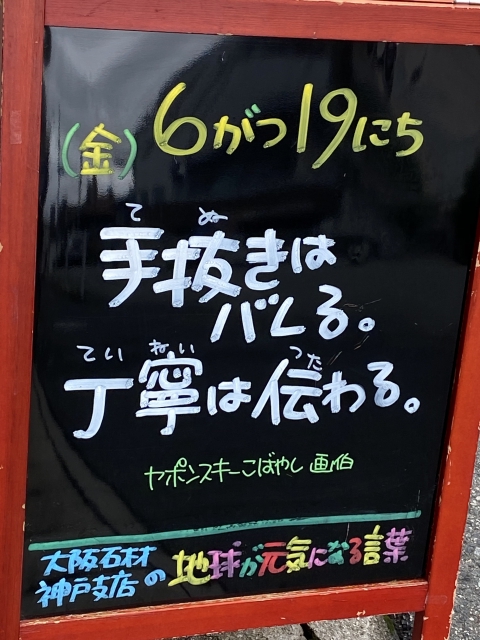 (金) 6がつ19にち
て ぬ
手抜きは
バレる。
ていねい つた
丁寧は伝わる。
ヤポンスキーこばやし画伯
大阪石材
神戸支店の地球が元気になる言葉